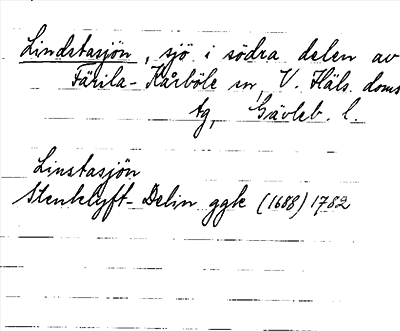 Lindstasjön, sjö i södra delen av
Färila-Kårböle sn, V. Häls. doms
tg, Gävleb. l.
Linstasjön
Stenklyft-Delin ggk (1688) 1782